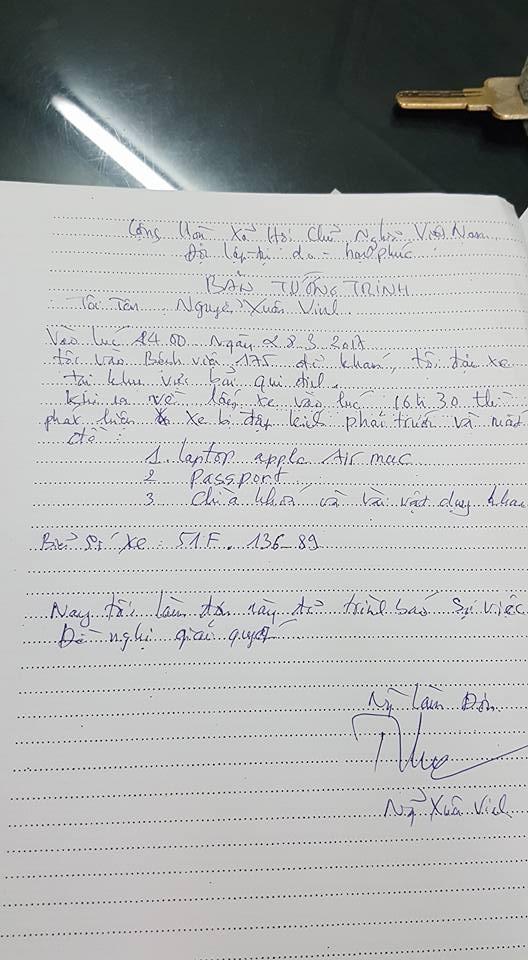 Cộng Hoà Xã Hội Chủ Nghĩa Việt Nam
Độ lập - tự do - hạnh phúc
BẢN TƯỜNG TRÌNH
Tôi Tên Nguyễn Xuân Vinh
Vào lúc 14.00 ngày 28.3.2017
tôi vào Bệnh viện 175 để khám, tôi đậu xe
tại khu vực bãi qui định.
khi ra về lấy xe vào lúc 16h30 thì
phát hiện xe bị đập kính phải trước và mất
đồ :
1 laptop apple Air mac
2 passport
3 Chìa khoá và vài vật dụng khác
Biển số xe : 51F. 136_89
Nay tôi làm đơn này để trình báo sự việc
Đề nghị giải quyết
Ng Làm Đơn
Ng Xuân Vinh